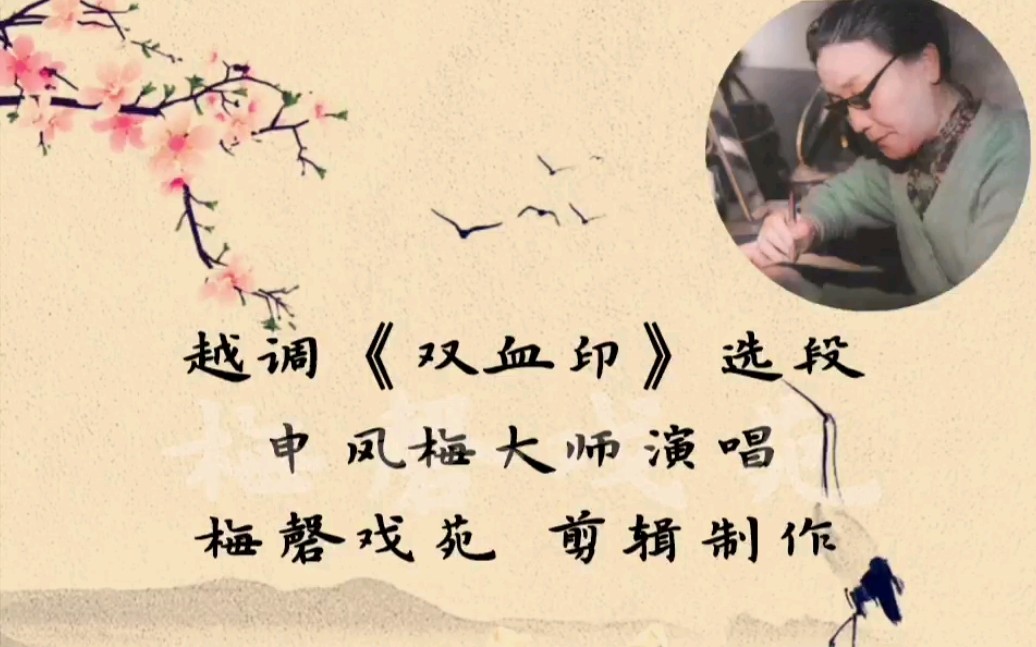 越调《双血印》选段
申凤梅大师演唱
梅磬戏苑 剪辑制作
梅磬戏苑